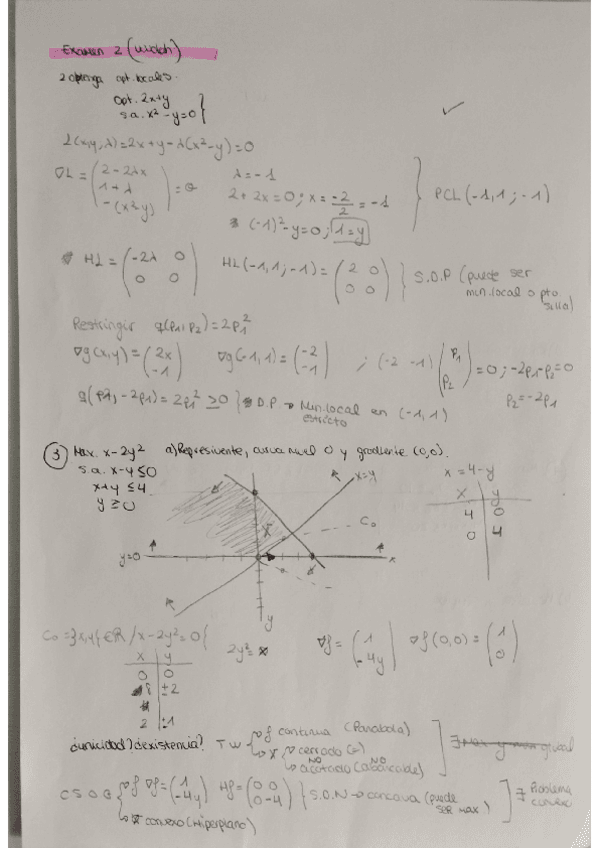 Examen 2
2 opt. locales.
Opt. 2x+y
s.a. x²-y=0
L(x,y,λ)=2x+y-λ(x²-y)=0
∇L = (2-2λx, 1+λ, -(x²-y)) = θ
λ=-1
2+2x=0; x=-2/2=-1
(-1)²-y=0; 1=y
PCL(-1,1;-1)
HL = (-2λ 0, 0 0) HL(-1,1;-1) = (2 0, 0 0) S.D.P (puede ser min.local o pto silla)
Restringir q(p1,p2)=2p1²
∇g(x,y)=(2x, -1) ∇g(-1,1)=(-2, -1) ; (-2 -1)(p1, p2)=0; -2p1-p2=0
p2=-2p1
q(p1,-2p1)=2p1² ≥0 D.P → Min.local estricto en (-1,1)
3 Max. x-2y² a) Represente, curva nivel 0 y gradiente (0,0).
s.a. x-y≤0
x+y ≤4
y≥0
x=y
C0
y=0
x
y
x=4-y
x y
4 0
0 4
x-2y²=0
x y
0 0
8 ±2
2 ±1
2y²=x
∇f=(1, -4y) ∇f(0,0)=(1, 0)
¿unicidad? ¿existencia? TW f continua (Parabola)
cerrado
NO acotado
global
CSOG f ∇f=(1, -4y) Hf=(0 0, 0 -4) S.D.N → concava (puede ser max)
convexo (Hiperplano)
∃ Problema convexo